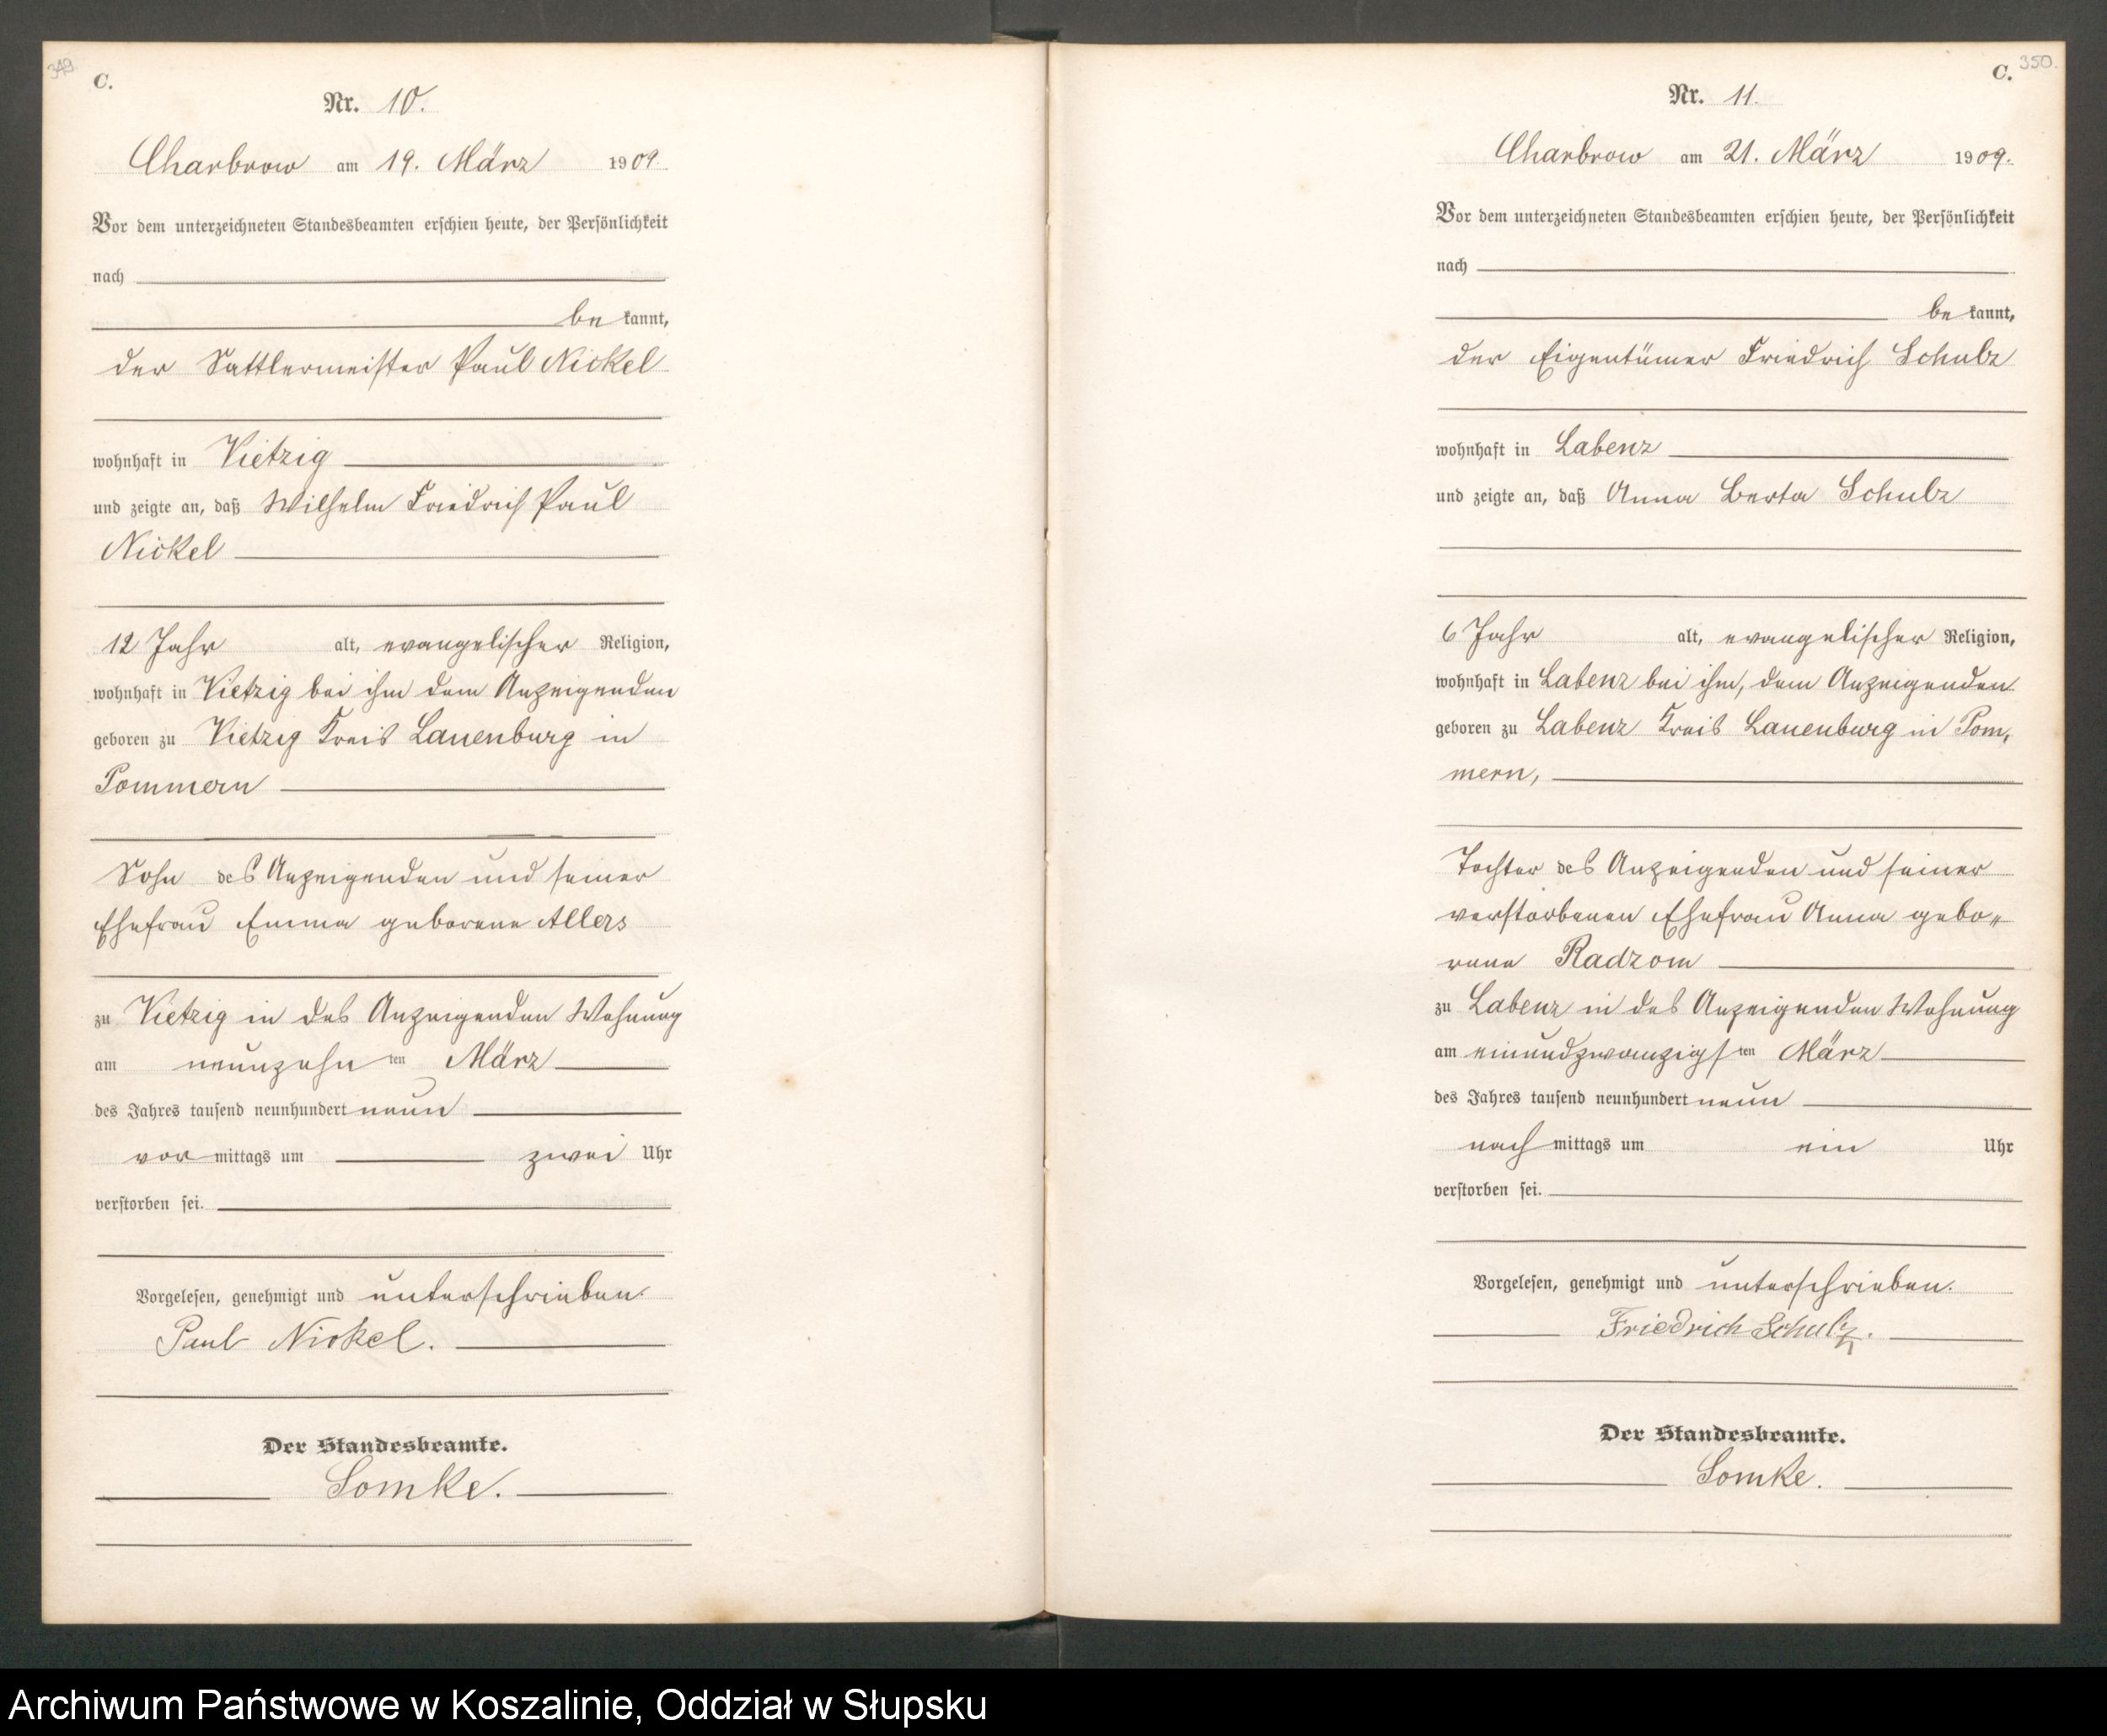 349.
C.
Nr. 10.
Charbrow am 19. März 1909.
Vor dem unterzeichneten Standesbeamten erschien heute, der Persönlichkeit
nach
be kannt,
der Sattlermeister Paul Nickel
wohnhaft in Vietzig
und zeigte an, daß Wilhelm Friedrich Paul
Nickel
12 Jahr alt, evangelischer Religion,
wohnhaft in Vietzig bei ihm dem Anzeigenden
geboren zu Vietzig Kreis Lauenburg in
Pommern
Sohn des Anzeigenden und seiner
Ehefrau Emma geborene Allers
zu Vietzig in des Anzeigenden Wohnung
am neunzehn ten März
des Jahres tausend neunhundert neun
vor mittags um zwei Uhr
verstorben sei.
Vorgelesen, genehmigt und unterschrieben.
Paul Nickel.
Der Standesbeamte.
Somke.
350.
C.
Nr. 11.
Charbrow am 21. März 1909.
Vor dem unterzeichneten Standesbeamten erschien heute, der Persönlichkeit
nach
be kannt,
der Eigentümer Friedrich Schulz
wohnhaft in Labenz
und zeigte an, daß Anna Berta Schulz
6 Jahr alt, evangelischer Religion,
wohnhaft in Labenz bei ihm, dem Anzeigenden
geboren zu Labenz Kreis Lauenburg in Pom,
mern,
Tochter des Anzeigenden und seiner
verstorbenen Ehefrau Anna gebo„
rene Radzom
zu Labenz in des Anzeigenden Wohnung
am einundzwanzigs ten März
des Jahres tausend neunhundert neun
nach mittags um ein Uhr
verstorben sei.
Vorgelesen, genehmigt und unterschrieben.
Friedrich Schulz.
Der Standesbeamte.
Somke.
Archiwum Państwowe w Koszalinie, Oddział w Słupsku